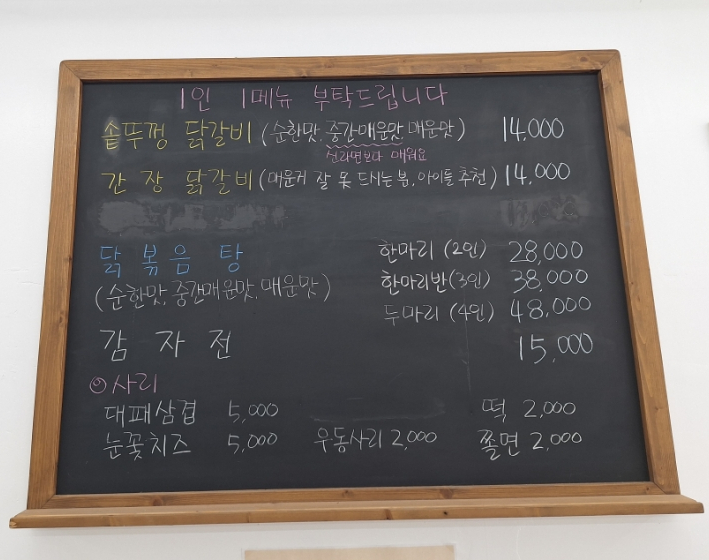 1인 1메뉴 부탁드립니다
솥뚜껑 닭갈비 (순한맛, 중간매운맛, 매운맛) 14,000
신라면보다 매워요
간장 닭갈비 (매운거 잘 못 드시는 분, 아이들 추천) 14,000
닭볶음탕 한마리 (2인) 28,000
한마리반(3인) 38,000
(순한맛, 중간매운맛, 매운맛)
두마리 (4인) 48,000
감자전 15,000
사리
대패삼겹 5,000 떡 2,000
눈꽃치즈 5,000 우동사리 2,000 쫄면 2,000